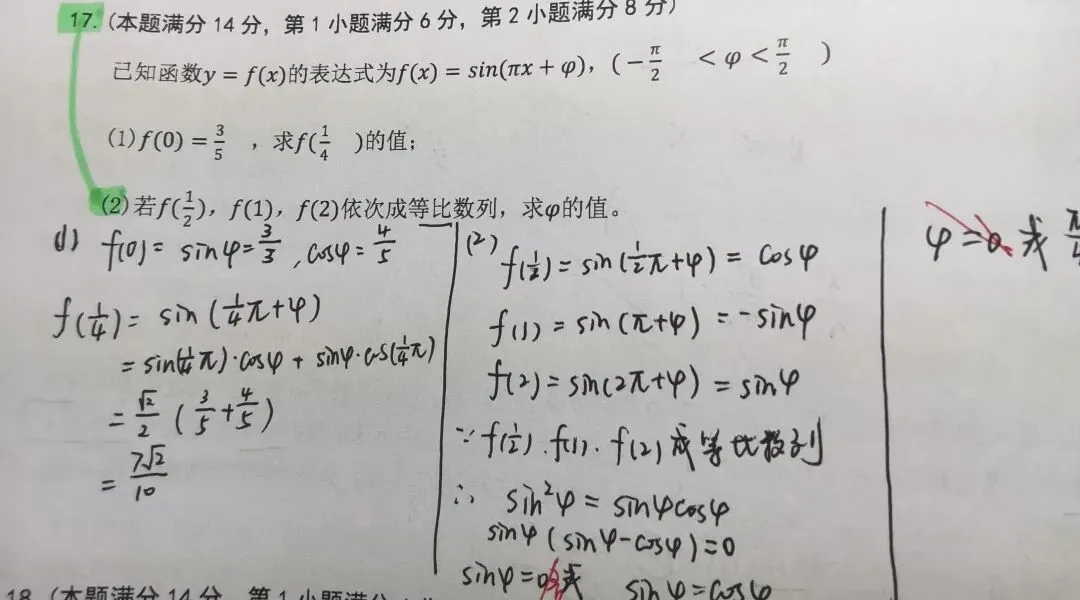 17. (本题满分 14 分，第 1 小题满分 6 分，第 2 小题满分 8 分)
已知函数y = f(x)的表达式为f(x) = sin(πx + φ)，(−π/2 < φ < π/2 )
(1) f(0) = 3/5 ，求f(1/4 )的值；
(2) 若f(1/2)，f(1)，f(2)依次成等比数列，求φ的值。
(1) f(0) = sinφ = 3/3 , cosφ = 4/5
f(1/4) = sin (1/4π+φ)
= sin(1/4π)·cosφ + sinφ·cos(1/4π)
= √2/2 (3/5 + 4/5)
= 7√2/10
(2) f(1/2) = sin(1/2π+φ) = cosφ
f(1) = sin(π+φ) = −sinφ
f(2) = sin(2π+φ) = sinφ
∵ f(1/2). f(1). f(2) 成等比数列
∴ sin²φ = sinφcosφ
sinφ (sinφ−cosφ) = 0
sinφ = 0 或 sinφ = cosφ
φ = 0 或 π/4
18. (本题满分 14 分，第 1 小题满分